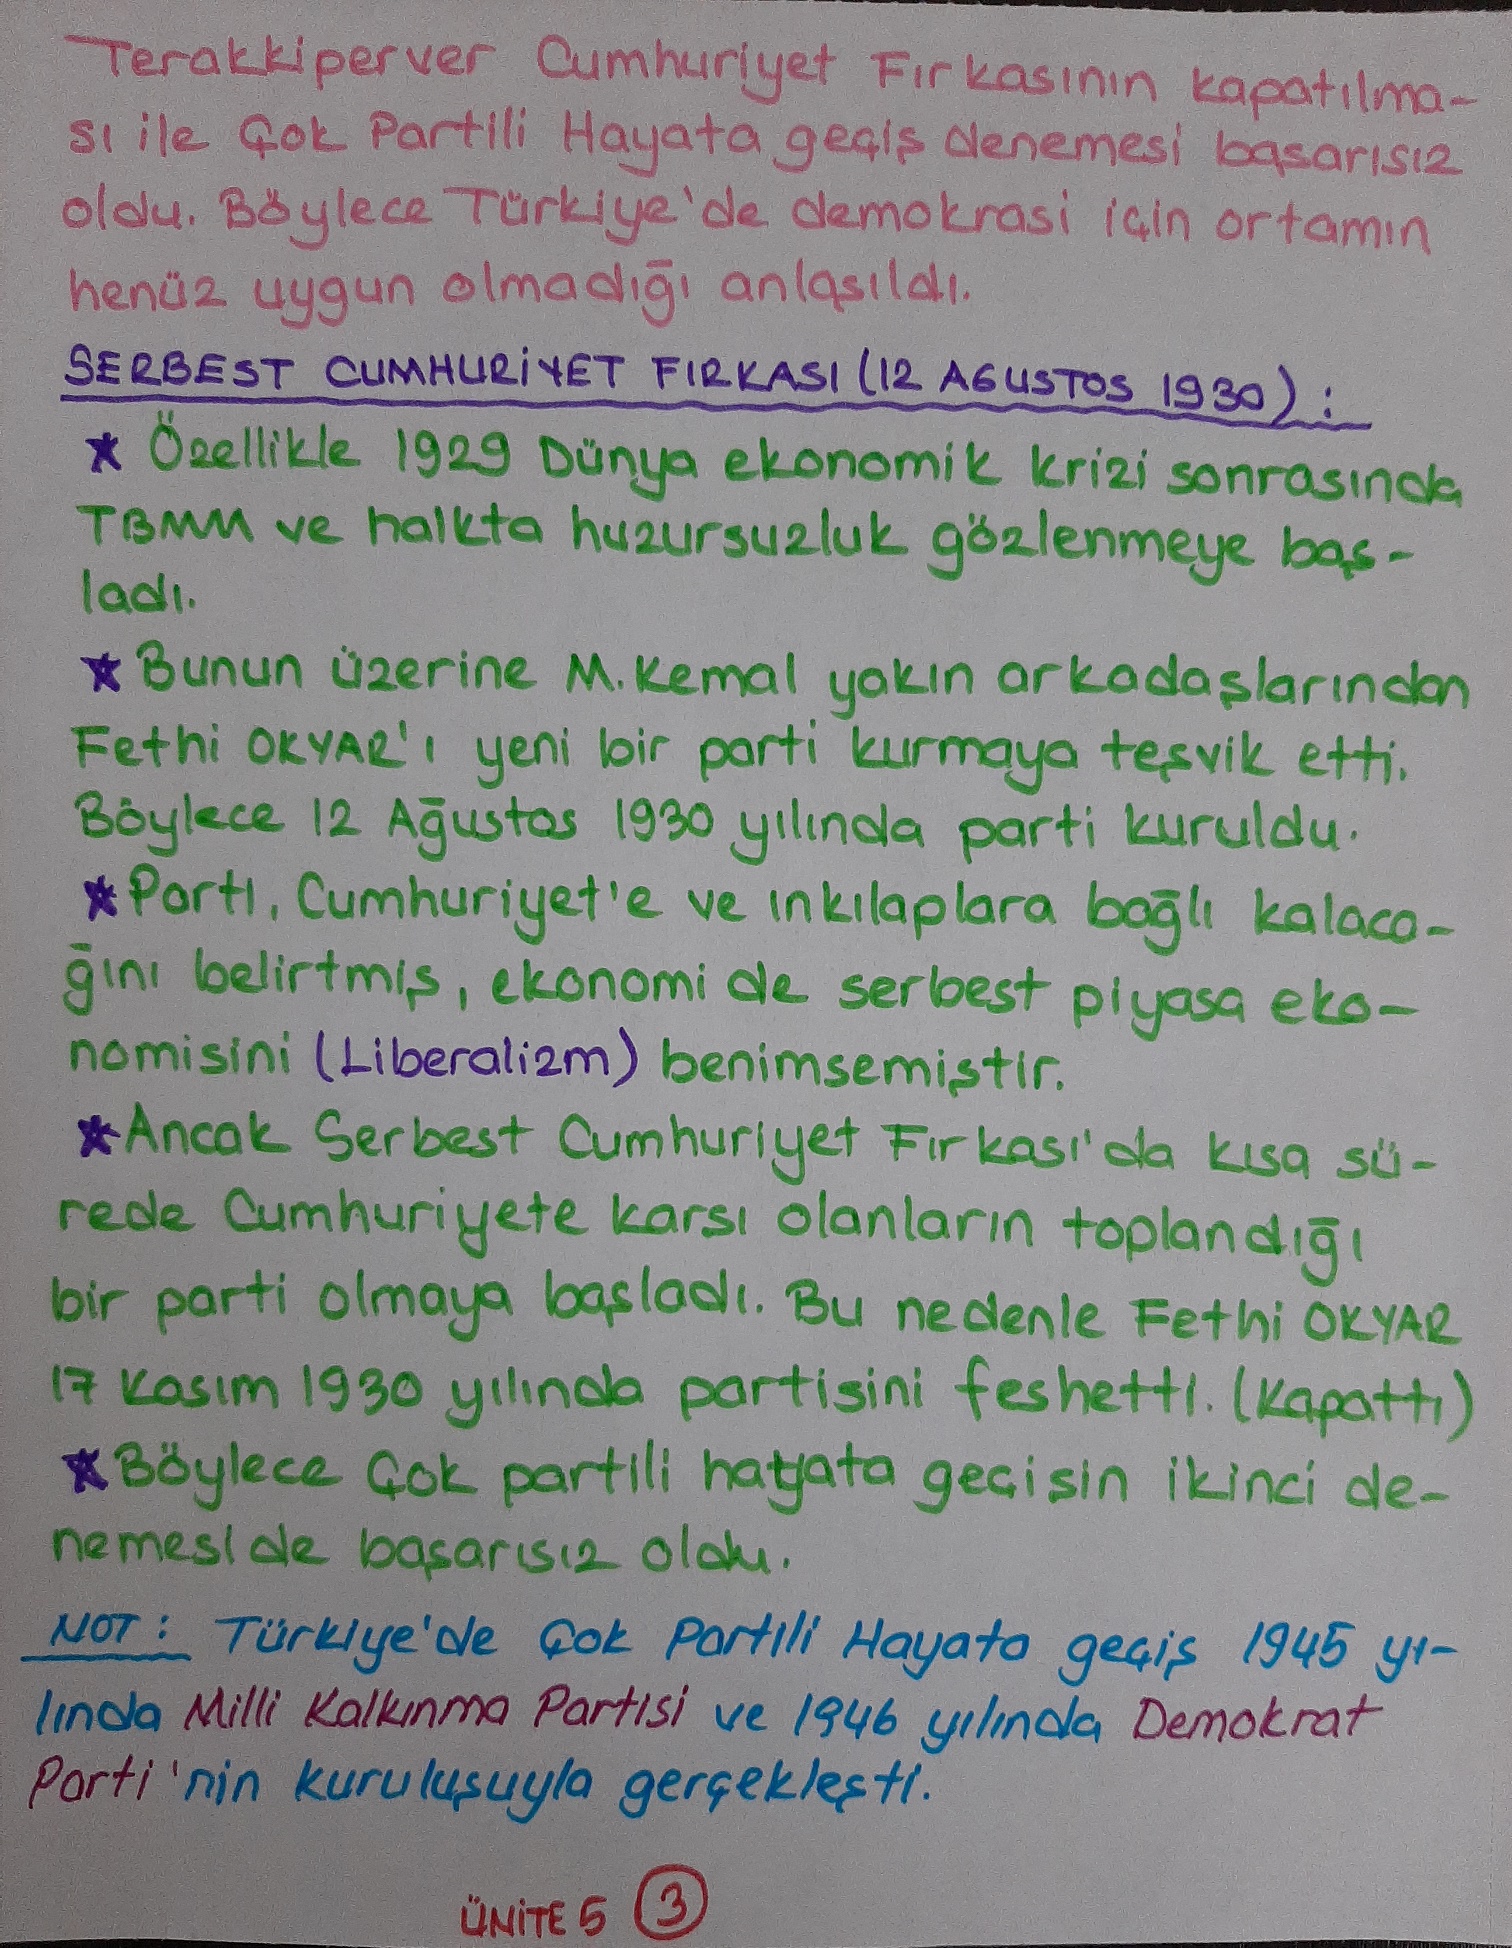 Terakkiperver Cumhuriyet Fırkasının kapatılma-
sı ile Çok Partili Hayata geçiş denemesi başarısız
oldu. Böylece Türkiye'de demokrasi için ortamın
henüz uygun olmadığı anlaşıldı.
SERBEST CUMHURİYET FIRKASI (12 AGUSTOS 1930) :
* Özellikle 1929 Dünya ekonomik krizi sonrasında
TBMM ve halkta huzursuzluk gözlenmeye baş-
ladı.
* Bunun üzerine M. Kemal yakın arkadaşlarından
Fethi OKYAR'ı yeni bir parti kurmaya teşvik etti.
Böylece 12 Ağustos 1930 yılında parti kuruldu.
* Partı, Cumhuriyet'e ve ınkılaplara bağlı kalaca-
ğını belirtmiş, ekonomi de serbest piyasa eko-
nomisini (Liberalizm) benimsemiştir.
* Ancak Serbest Cumhuriyet Fırkası'da kısa sü-
rede Cumhuriyete karsı olanların toplandığı
bir parti olmaya başladı. Bu nedenle Fethi OKYAR
17 Kasım 1930 yılında partisini feshettı. (Kapattı)
* Böylece Çok partili hayata geçisin ikinci de-
nemesi de başarısız oldu.
NOT : Türkiye'de Çok Partili Hayata geçiş 1945 yı-
lında Milli Kalkınma Partisi ve 1946 yılında Demokrat
Parti'nin kuruluşuyla gerçekleşti.
ÜNİTE 5 3